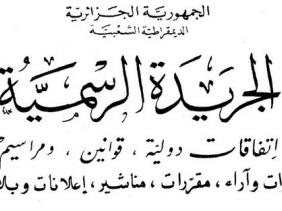 الجمهورية الجزائرية
الديمقراطية الشعبية
الجريدة الرسمية
اتفاقات دولية ، قوانين ، ومراسيم
وآراء ، مقررات ، مناشير ، إعلانات